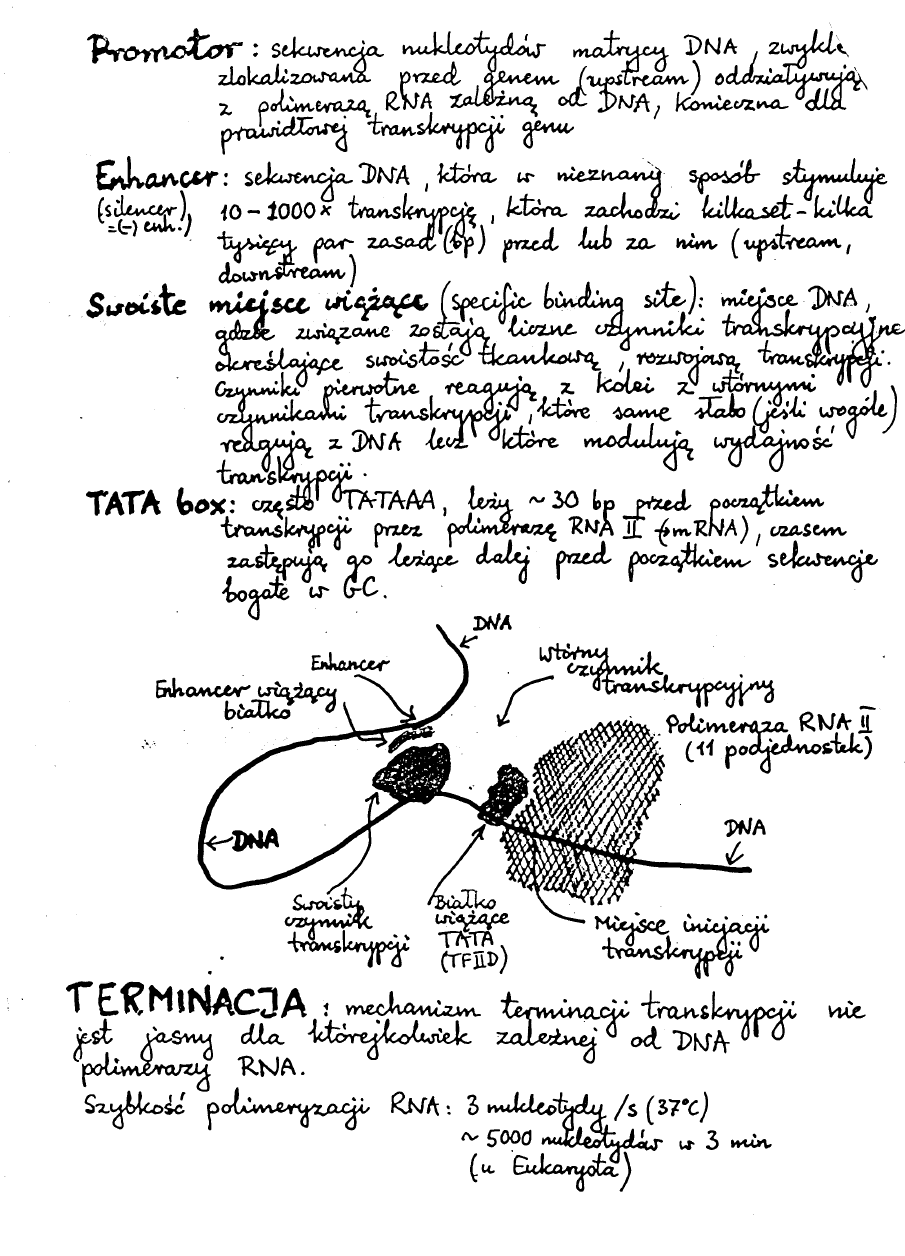 Promotor: sekwencja nukleotydów matrycy DNA, zwykle
zlokalizowana przed genem (upstream) oddziaływują
z polimerazą RNA zależną od DNA, konieczna dla
prawidłowej transkrypcji genu
Enhancer: sekwencja DNA, która w nieznany sposób stymuluje
(silencer) 10-1000x transkrypcję, która zachodzi kilkaset-kilka
=(-) enh.) tysięcy par zasad (bp) przed lub za nim (upstream,
downstream)
Swoiste miejsce wiążące (specific binding site): miejsce DNA,
gdzie związane zostają liczne czynniki transkrypcyjne
określające swoistość tkankową, rozwojową transkrypcji.
Czynniki pierwotne reagują z kolei z wtórnymi
czynnikami transkrypcji, które same słabo (jeśli wogóle)
reagują z DNA lecz które modulują wydajność
transkrypcji.
TATA box: często TATAAA, leży ~30 bp przed początkiem
transkrypcji przez polimerazę RNA II (mRNA), czasem
zastępują go leżące dalej przed początkiem sekwencje
bogate w GC.
DNA
Enhancer
Wtórny
czynnik
transkrypcyjny
Enhancer wiążący
białko
Polimeraza RNA II
(11 podjednostek)
DNA
DNA
Swoisty
czynnik
transkrypcji
Białko
wiążące
TATA
(TFIID)
Miejsce inicjacji
transkrypcji
TERMINACJA: mechanizm terminacji transkrypcji nie
jest jasny dla którejkolwiek zależnej od DNA
polimerazy RNA.
Szybkość polimeryzacji RNA: 3 nukleotydy /s (37°C)
~ 5000 nukleotydów w 3 min
(u Eukaryota)